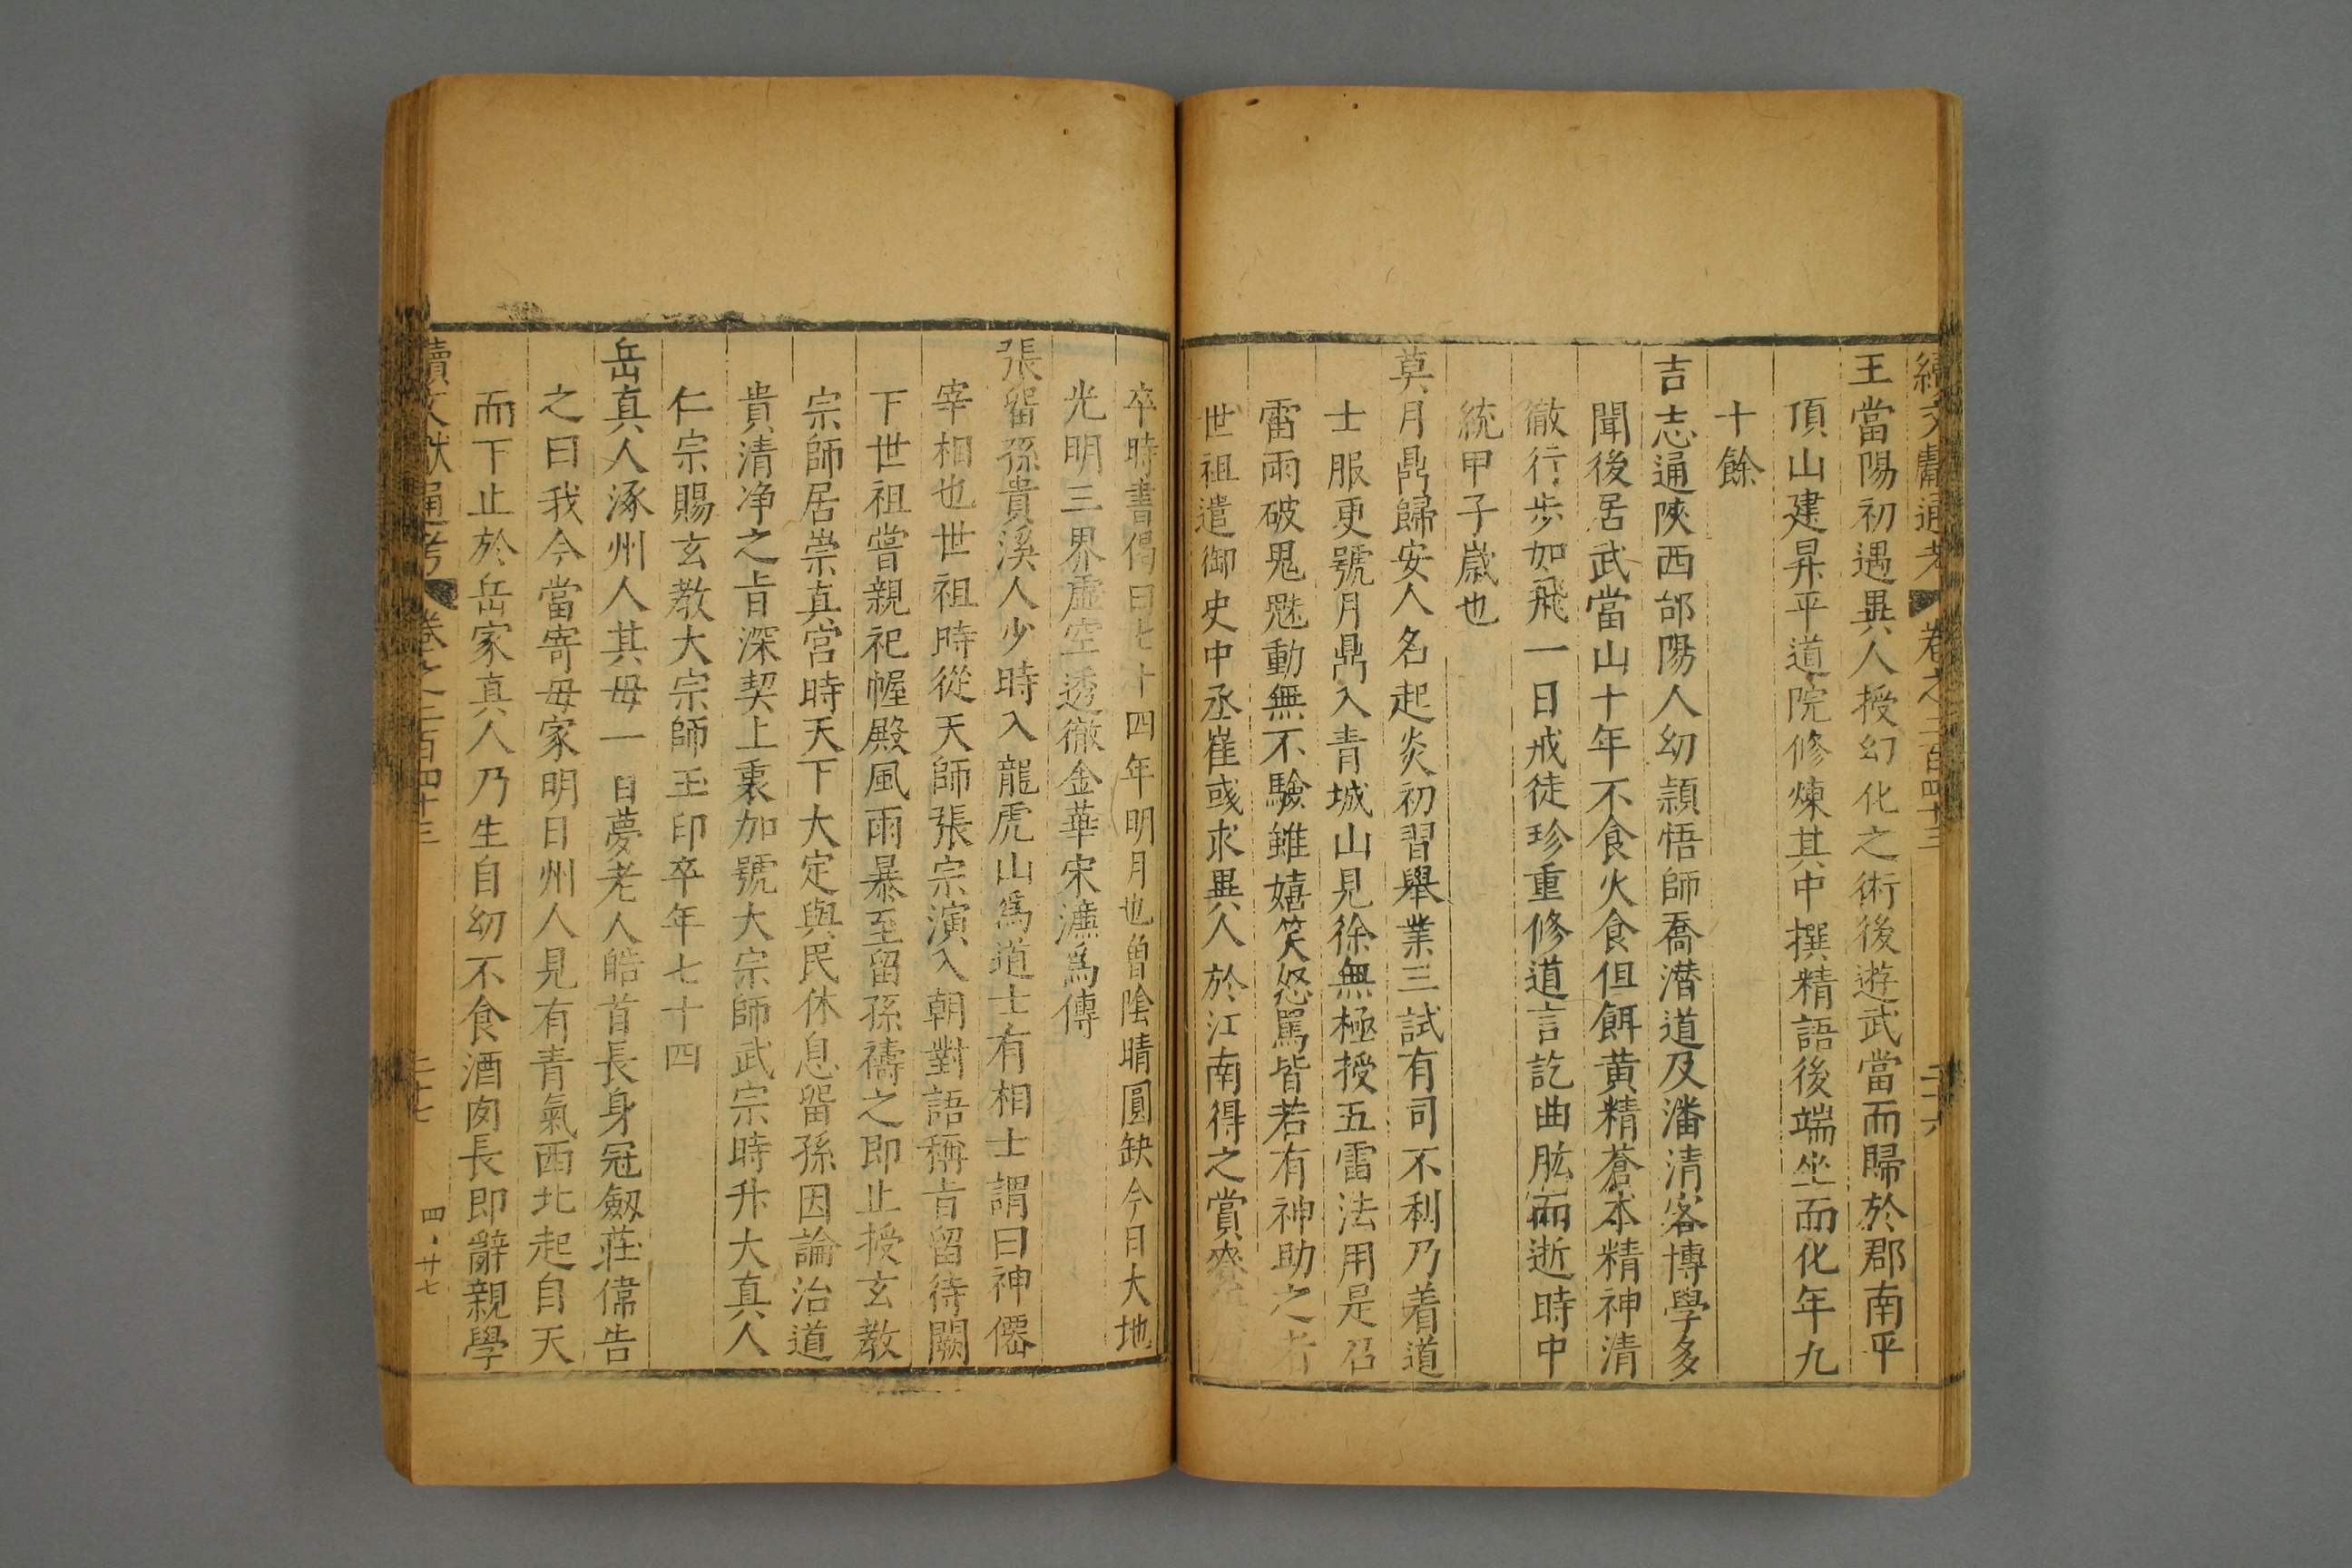 續文獻通考 卷之二百四十三 二十六
王當陽初遇異人授幻化之術後遊武當而歸於郡南平
頂山建昇平道院修煉其中撰精語後端坐而化年九
十餘
吉志通陝西郃陽人幼頴悟師喬潜道及潘清客博學多
聞後居武當山十年不食火食但餌黄精蒼术精神清
徹行步如飛一日戒徒珍重修道言訖曲肱而逝時中
統甲子嵗也
莫月鼎歸安人名起炎初習舉業三試有司不利乃着道
士服更號月鼎入青城山見徐無極授五雷法用是召
雷雨破鬼魅動無不驗雖嬉笑怒罵皆若有神助之者
世祖遣御史中丞崔彧求異人於江南得之賞賚
卒時書偈曰七十四年明月也曽陰晴圓缺今日大地
光明三界虛空透徹金華宋濂爲傳
張畱孫貴溪人少時入龍虎山爲道士有相士謂曰神僊
宰相也世祖時從天師張宗演入朝對語稱㫖留待闕
下世祖嘗親祀幄殿風雨暴至留孫禱之即止授玄教
宗師居崇真宫時天下大定與民休息畱孫因論治道
貴清净之㫖深契上裏加號大宗師武宗時升大真人
仁宗賜玄教大宗師玉印卒年七十四
岳真人涿州人其母一日夢老人皓首長身冠劔莊偉告
之曰我今當寄母家明日州人見有青氣西北起自天
而下止於岳家真人乃生自幼不食酒肉長即辭親學
續文獻通考 卷之二百四十三 二十七 四·廿七